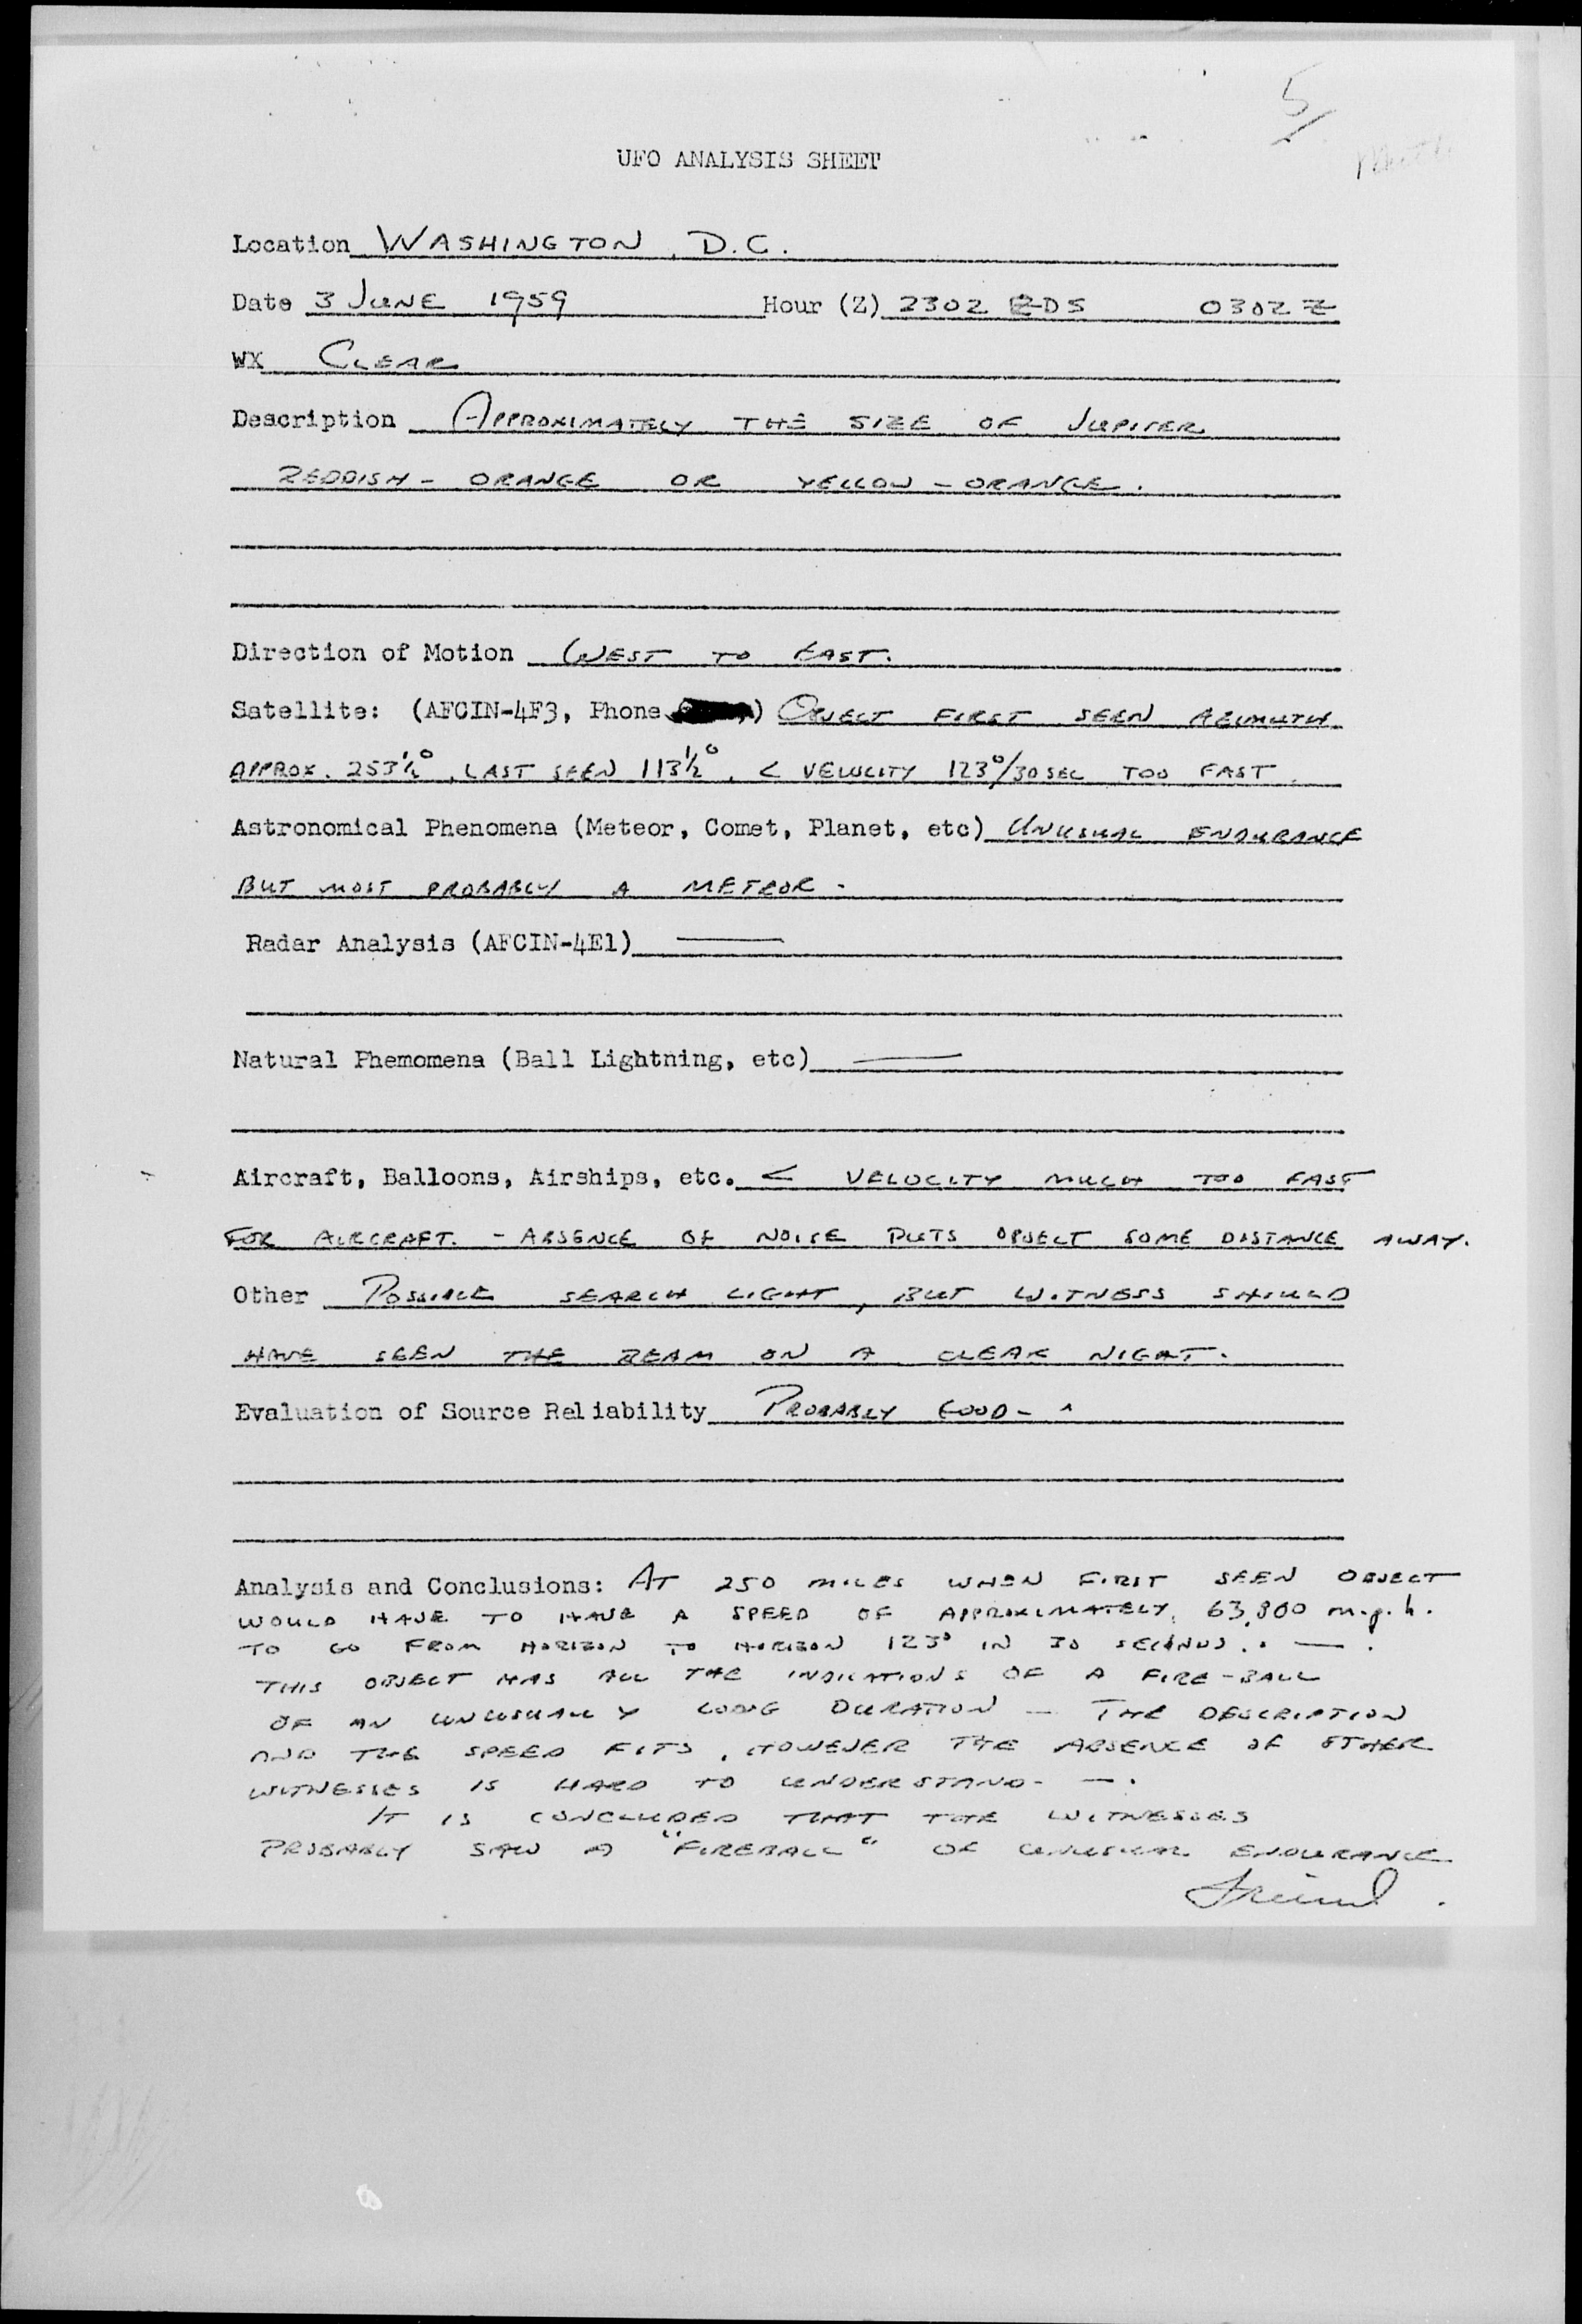 5/
UFO ANALYSIS SHEET
Location WASHINGTON, D.C.
Date 3 JUNE 1959 Hour (Z) 2302 EDS 0302 Z
WX CLEAR
Description APPROXIMATELY THE SIZE OF JUPITER
REDDISH - ORANGE OR YELLOW - ORANGE.
Direction of Motion WEST TO EAST.
Satellite: (AFCIN-4F3, Phone ) OBJECT FIRST SEEN AZIMUTH
APPROX. 253½°, LAST SEEN 113½°. < VELOCITY 123°/30 SEC TOO FAST.
Astronomical Phenomena (Meteor, Comet, Planet, etc) UNUSUAL ENDURANCE
BUT MOST PROBABLY A METEOR -
Radar Analysis (AFCIN-4E1) —
Natural Phemomena (Ball Lightning, etc) —
Aircraft, Balloons, Airships, etc. < VELOCITY MUCH TOO FAST
FOR AIRCRAFT. - ABSENCE OF NOISE PUTS OBJECT SOME DISTANCE AWAY.
Other POSSIBLE SEARCH LIGHT, BUT WITNESS SHOULD
HAVE SEEN THE BEAM ON A CLEAR NIGHT.
Evaluation of Source Reliability PROBABLY GOOD -
Analysis and Conclusions: AT 250 MILES WHEN FIRST SEEN OBJECT
WOULD HAVE TO HAVE A SPEED OF APPROXIMATELY 63,800 m.p.h.
TO GO FROM HORIZON TO HORIZON 123° IN 30 SECONDS. . — .
THIS OBJECT HAS ALL THE INDICATIONS OF A FIRE-BALL
OF AN UNUSUALLY LONG DURATION — THE DESCRIPTION
AND THE SPEED FITS, HOWEVER THE ABSENCE OF OTHER
WITNESSES IS HARD TO UNDERSTAND - — .
IT IS CONCLUDED THAT THE WITNESSES
PROBABLY SAW A "FIREBALL" OF UNUSUAL ENDURANCE
Friend .